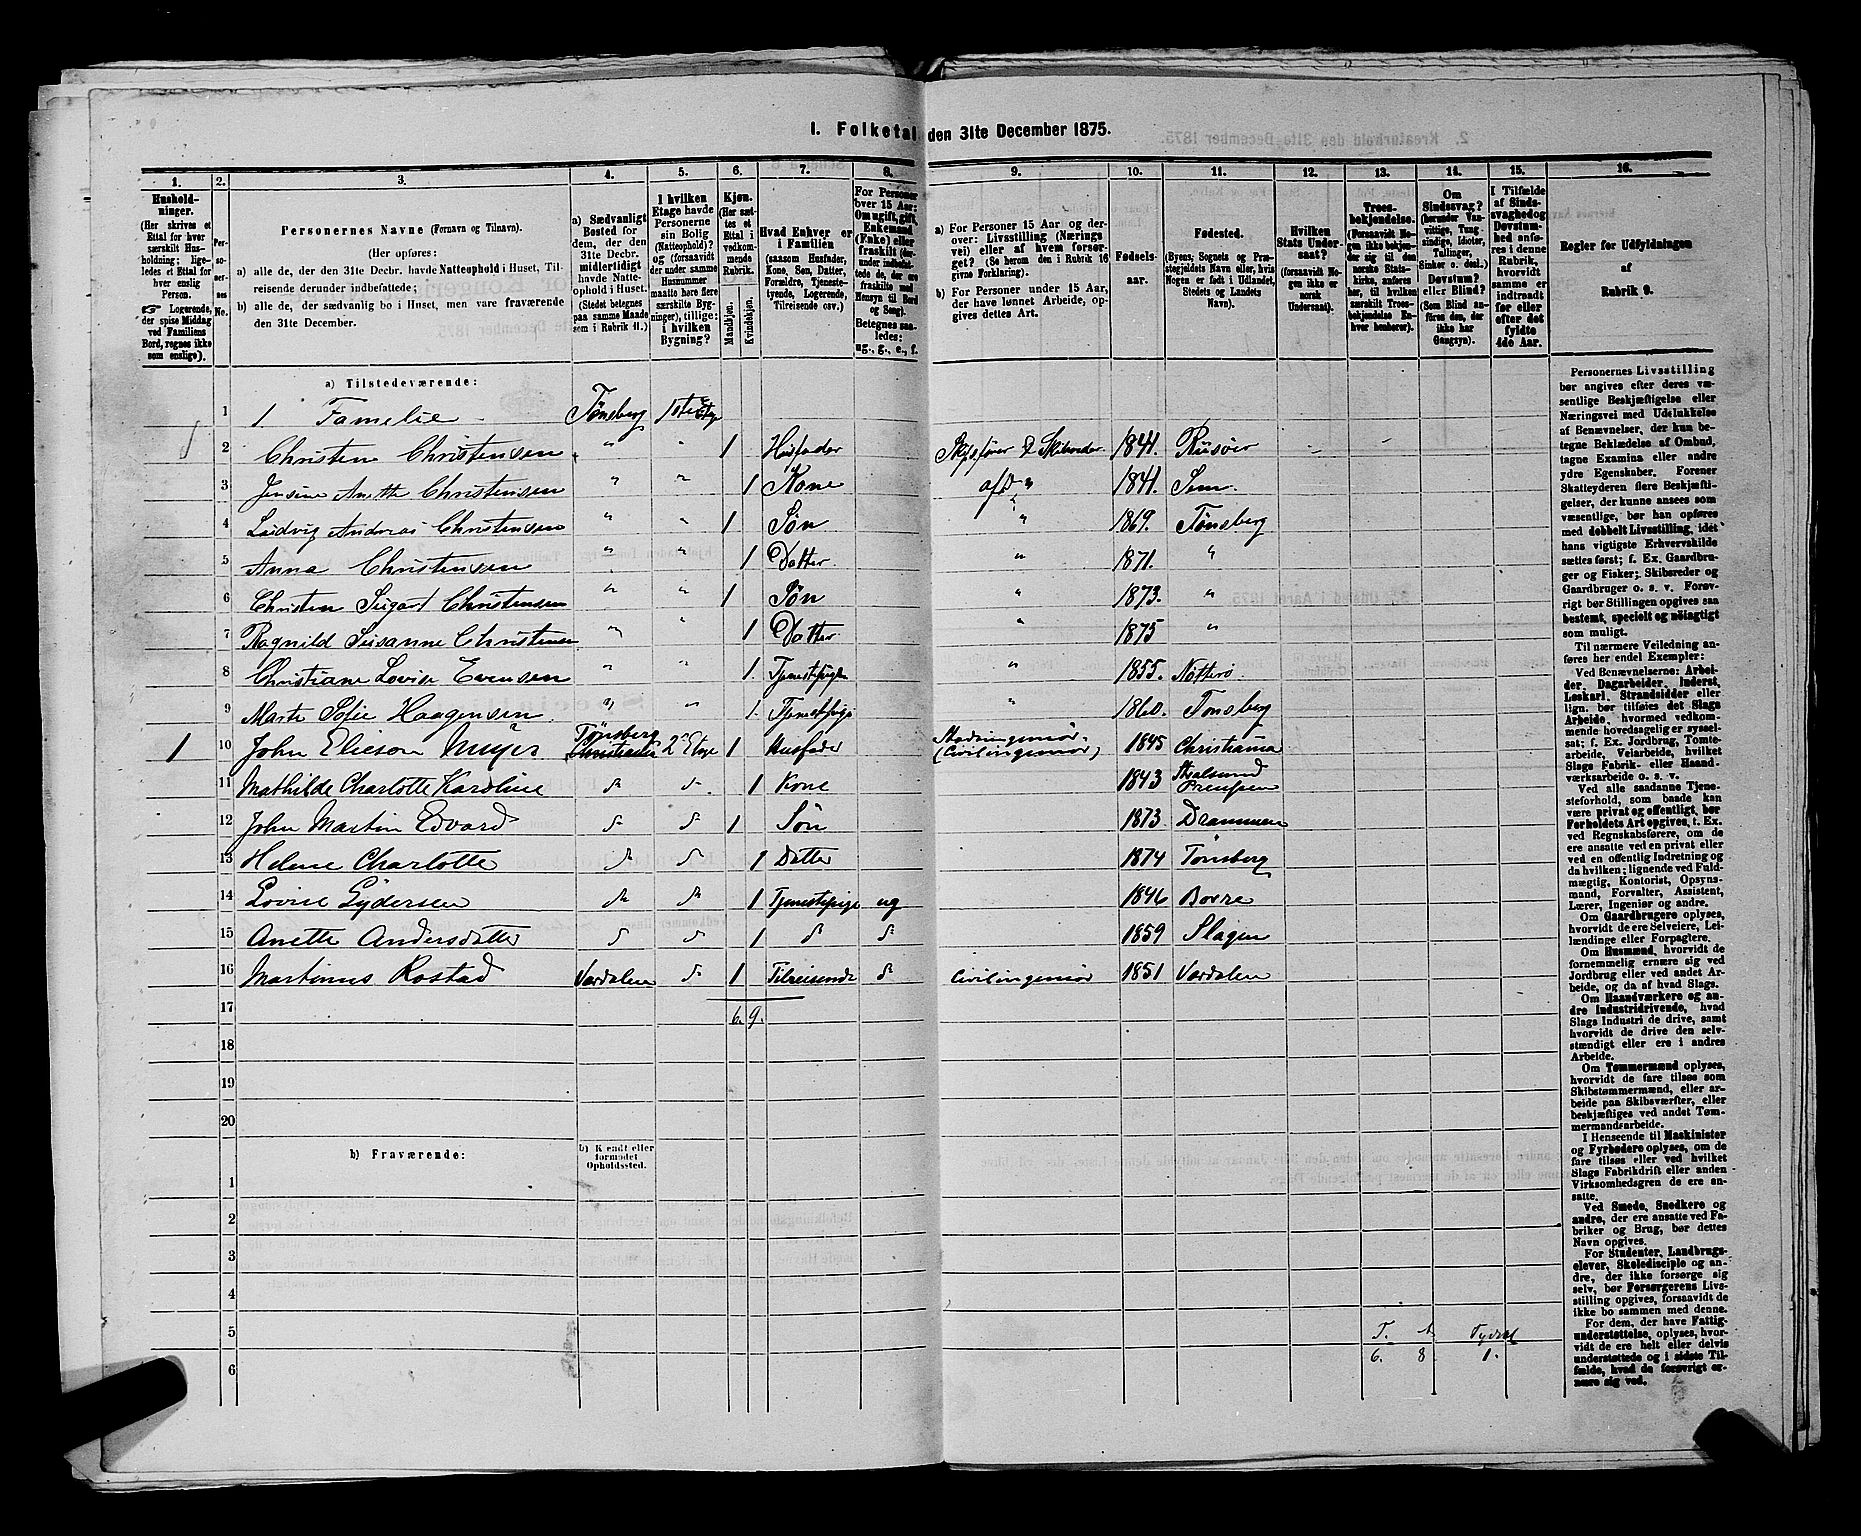 1. Folketal den 31te December 1875.
1. 2. 3. 4. 5. 6. 7. 8. 9. 10. 11. 12. 13. 14. 15. 16.
Hushold-
ninger.
(Her skrives et
Ettal for hver
særskilt Hus-
holdning; lige-
ledes et Ettal for
hver enslig
Person.
Logerende,
der spise Middag
ved Familiens
Bord, regnes ikke
som enslige).
Per-
so-
ner-
nes
No.
Personernes Navne (Fornavn og Tilnavn).
(Her opføres:
a) alle de, der den 31te Decbr. havde Natteophold i Huset, Til-
reisende derunder indbefattede;
b) alle de, der sædvanlig bo i Huset, men vare fraværende
den 31te December.
a) Sædvanligt
Bosted for
dem, der den
31te Decbr.
midlertidigt
havde Natte-
ophold i Huset.
(Stedet betegnes
paa samme Maade
som i Rubrik 11.)
I hvilken
Etage havde
Personerne
sin Bolig
(Natteophold)?
og (forsaavidt
der under samme
Husnummer
maatte høre flere
særskilte Byg-
ninger), tillige:
i hvilken
Bygning?
Kjøn.
(Her sæt-
tes et
Ettal i
vedkom-
mende
Rubrik.
Mandkjøn.
Kvindekjøn.
Hvad Enhver er
i Familien
(saasom Husfader,
Kone, Søn, Datter,
Forældre, Tjeneste-
tyende, Logerende,
Tilreisende osv.)
For Personer
over 15 Aar:
Om ugift, gift,
Enkemand
(Enke) eller
fraskilt (der-
under indbefat-
tede de, der ere
fraskilte med
Hensyn til Bord
og Seng).
Betegnes saa-
ledes:
ug., g., e., f.
a) For Personer 15 Aar og der-
over: Livsstilling (Nærings
vei) eller af hvem forsør-
get? (Se herom den i Rubrik 16
givne Forklaring).
b) For Personer under 15 Aar,
der have lønnet Arbeide, op-
gives dettes Art.
Fødsels-
aar.
Fødested.
(Byens, Sognets og Præ-
stegjeldets Navn eller, hvis
Nogen er født i Udlandet,
Stedets og Landets
Navn).
Hvilken
Stats Under-
saat?
(forsaavidt No-
gen ikke er
norsk
Undersaat).
Troes-
bekjendelse.
(Forsaavidt No-
gen ikke bekjen-
der sig til den
norske Stats-
kirke, anføres
her, til hvilken
særskilt Troes-
bekjendelse En-
hver henhører).
Om
Sindssvag?
(herunder Van-
vittige, Tung-
sindige, Idioter,
Tullinger,
Sinker o. desl.)
Døvstum?
eller Blind?
(Som Blind an-
føres den, der
ikke har
Gangsyn).
I Tilfælde
af Sinds-
svaghed og
Døvstum-
hed anfø-
res i denne
Rubrik,
hvorvidt
samme er
indtraadt
før eller
efter det
fyldte
4de Aar.
Regler for Udfyldningen
af
Rubrik 9.
a) Tilstedeværende:
1 1 Famelie Tønsberg 1ste Etage
2 Christen Christensen " " 1 Husfader Skibsfører & Skibsreder 1841. Risøer
3 Jensine Anette Christensen " " 1 Kone afd " 1841. Sem.
4 Ludvig Andreas Christensen " " 1 Søn " 1869. Tønsberg
5 Anna Christensen " " 1 Datter " 1871. "
6 Christen Sigart Christensen " " 1 Søn " 1873. "
7 Ragnild Susanne Christensen " " 1 Datter " 1875 "
8 Christiane Lovise Evensen " " 1. Tjenestepige " 1855. Nøtterø.
9 Marte Sofie Haagensen " " 1. Tjenestepige " 1860. Tønsberg
1 10 John Elieson Tønsberg 2n Etage 1 Husfader Stadsingeniør. (Civilingeniør) 1845 Christiania
11 Mathilde Charlotte Karoline do do 1 Kone 1843 Stralsund Preussen
12 John Martin Edvard do do 1 Søn 1873. Drammen
13 Helene Charlotte do do 1 Datter 1874 Tønsberg
14 Lovise Lydersen do do 1 Tjenestepige ug 1846 Borre
15 Anette Andersdatter do do 1 do do 1859 Slagen
16 Martinus Rostad Værdalen do 1 Tilreisende do Civilingeniør 1851 Værdalen
17 6. 9.
18
19
20
b) Fraværende:
b) Kjendt eller
formodet
Opholdssted.
1
2
3
4
5
6
T. 6. 8 1.
Personernes Livsstilling
bør angives efter deres væ-
sentlige Beskjæftigelse eller
Næringsvei med Udelukkelse
af Benævnelser, der kun be-
tegne Beklædelse af Ombud,
tagne Examina eller andre
ydre Egenskaber. Forener
Skatteyderen flere Beskjæfti-
gelser, der kunne ansees som
væsentlige, bør han opføres
med dobbelt Livsstilling, idet
hans vigtigste Erhvervskilde
sættes først; f. Ex. Gaardbru-
ger og Fisker; Skibsreder og
Gaardbruger o. s. v. Forøv-
rigt bør Stillingen opgives saa
bestemt, specielt og nøiagtigt
som muligt.
Til nærmere Veiledning an-
føres her endel Exempler:
Ved Benævnelserne: Arbei-
der, Dagarbeider, Inderst,
Løskarl, Strandsidder eller
lign. bør tilføies det Slags
Arbeide, hvormed vedkom-
mende hovedsagelig er syssel-
sat; f. Ex. Jordbrug, Tomte-
arbeide, Veiarbeide, hvilket
Slags Fabrik- eller Haand-
værksarbeide o. s. v.
Ved alle saadanne Tjene-
steforhold, som baade kan
være privat og offentligt, bør
Forholdets Art opgives, t. Ex.
ved Regnskabsførere, om de
ere ansatte ved en privat eller
ved en offentlig Indretning og
da hvilken; lignende ved Fuld-
mægtig, Kontorist, Opsyns-
mand, Forvalter, Assistent,
Lærer, Ingeniør og andre.
Om Gaardbrugere oplyses,
hvorvidt de ere Selveiere, Lei-
lændinge eller Forpagtere.
Om Husmænd, hvorvidt de
fornemmelig ernære sig ved
Jordbrug eller ved andet Ar-
beide, og da af hvad Slags.
Om Haandværkere og an-
dre Industridrivende, hvad
Slags Industri de drive, samt
hvorvidt de drive den selv-
stændigt eller ere i andres
Arbeide.
Om Tømmermænd oplyses,
hvorvidt de fare tilsøs som
Skibstømmermænd, eller ar-
beide paa Skibsværfter, eller
beskjæftiges ved andet Tøm-
mermandsarbeide.
I Henseende til Maskinister
og Fyrbødere oplyses, om de
fare tilsøs eller ved hvilket
Slags Fabrikdrift eller anden
Virksomhedsgren de ere an-
satte.
Ved Smede, Snedkere og
andre, der ere ansatte ved Fa-
briker og Brug, bør dettes
Navn opgives.
For Studenter, Landbrugs-
elever, Skoledisciple og an-
dre, der ikke forsørge sig
selv, bør Forsørgerens Livs-
stilling opgives, forsaavidt de
ikke bo sammen med denne.
For dem, der have Fattig-
understøttelse, oplyses, hvor-
vidt de ere helt eller delvis
understøttede og i sidste Til-
fælde, hvad de forøvrigt er-
nære sig ved.